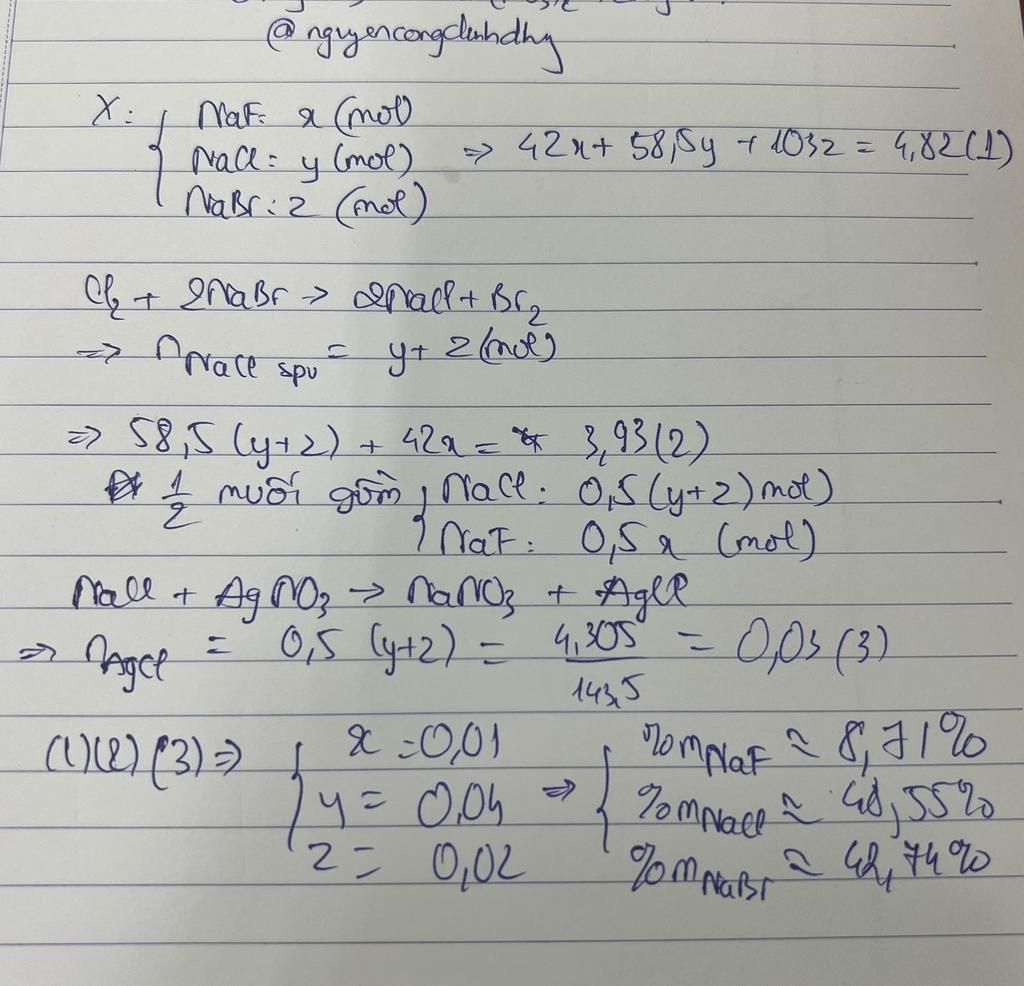 @nguyencongclinhdhy
X: { NaF: x (mol)
NaCl: y (mol) ⇒ 42x + 58,5y + 103z = 4,82 (1)
NaBr: z (mol)
Cl2 + 2NaBr → 2NaCl + Br2
⇒ nNaCl spư = y + z (mol)
⇒ 58,5 (y+z) + 42x = 3,93 (2)
1/2 muối gồm { NaCl: 0,5(y+z) mol)
NaF: 0,5x (mol)
NaCl + AgNO3 → NaNO3 + AgCl
⇒ nAgCl = 0,5 (y+z) = 4,305/143,5 = 0,03 (3)
(1)(2)(3) ⇒ { x = 0,01 ⇒ { %mNaF ≈ 8,71%
y = 0,04 %mNaCl ≈ 48,55%
z = 0,02 %mNaBr ≈ 42,74%